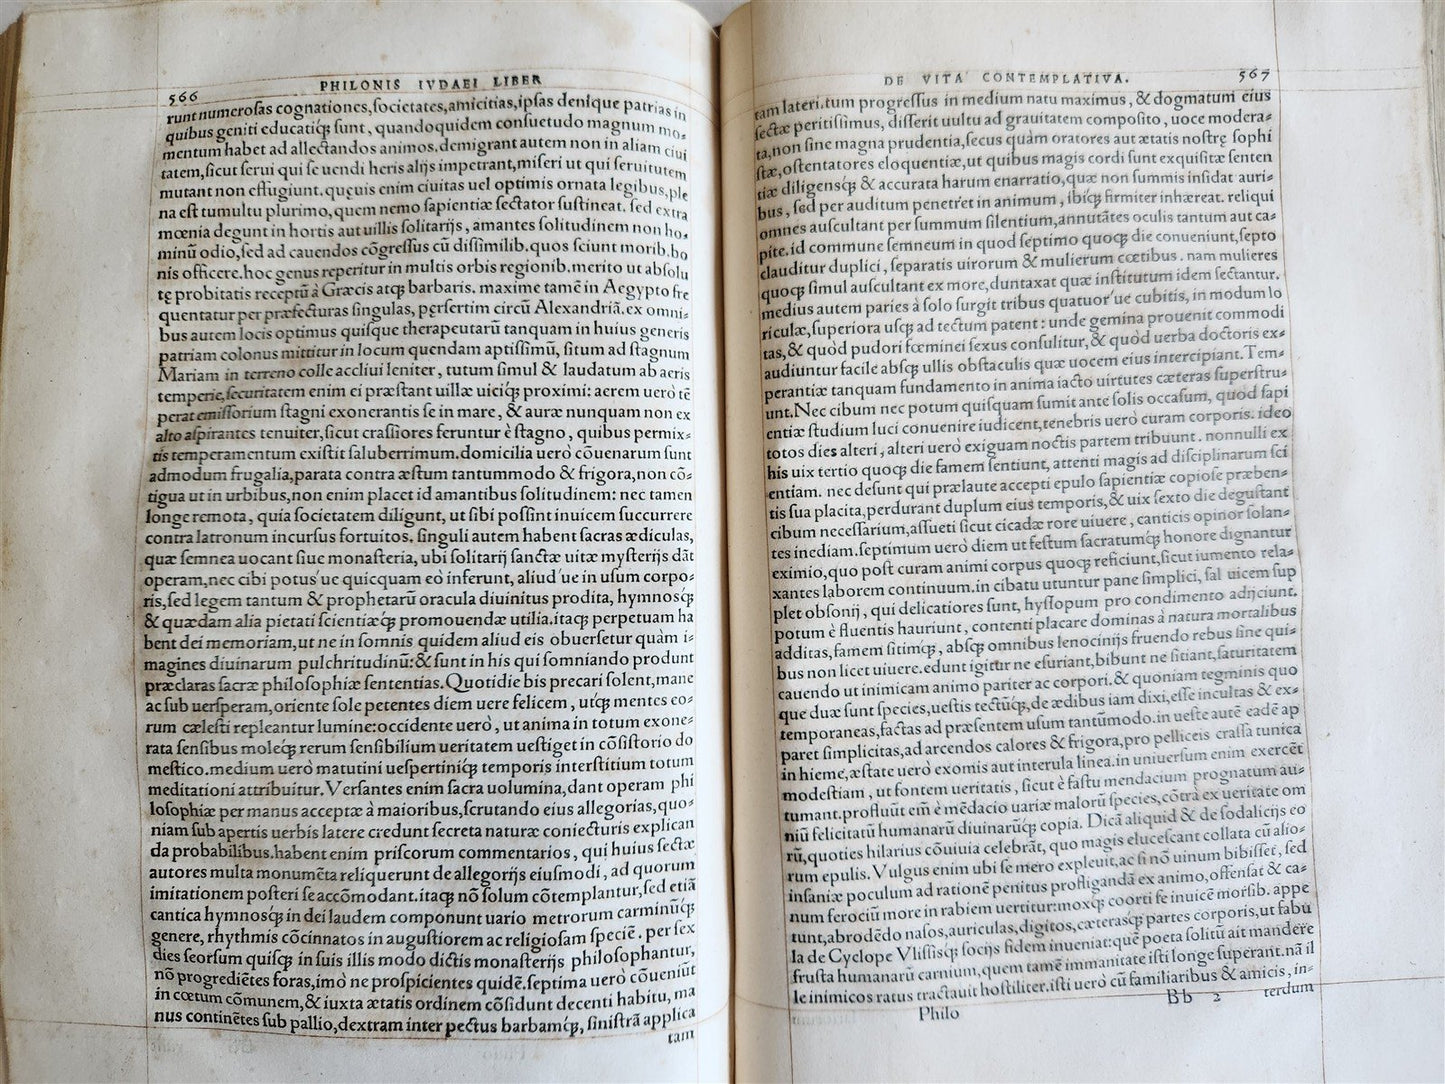 566 PHILONIS IVDAEI LIBER
runt numerosas cognationes,societates,amicitias,ipsas denique patrias in
quibus geniti educatiq́ꝫ sunt, quandoquidem consuetudo magnum mo-
mentum habet ad allectandos animos.demigrant autem non in aliam ciui
tatem,sicut serui qui se uendi heris alijs impetrant,miseri ut qui seruitutem
mutant non effugiunt.quęuis enim ciuitas uel optimis ornata legibus,ple
na est tumultu plurimo,quem nemo sapientiæ sectator sustineat. sed extra
mœnia degunt in hortis aut uillis solitarijs, amantes solitudinem non ho-
minũ odio,sed ad cauendos cõgressus cũ dissimilib.quos sciunt morib.bo
nis officere.hoc genus reperitur in multis orbis regionib.merito ut absolu
tę probitatis receptũ à Græcis atqꝫ barbaris. maxime tamẽ in Aegypto fre
quentatur per præfecturas singulas, pęrsertim circũ Alexandriã.ex omni-
bus autem locis optimus quisque therapeutarũ tanquam in huius generis
patriam colonus mittitur in locum quendam aptissimũ, situm ad stagnum
Mariam in terreno colle accliui leniter, tutum simul & laudatum ab aeris
temperie,securitatem enim ei præstant uillæ uiciq́ꝫ proximi: aerem uerò tẽ
perat emissorium stagni exonerantis se in mare, & auræ nunquam non ex
alto aspirantes tenuiter,sicut crassiores feruntur è stagno, quibus permix-
tis temperamentum existit saluberrimum.domicilia uerò cõuenarum sunt
admodum frugalia,parata contra æstum tantummodo & frigora,non cõ-
tigua ut in urbibus,non enim placet id amantibus solitudinem: nec tamen
longe remota, quia societatem diligunt, ut sibi possint inuicem succurrere
contra latronum incursus fortuitos. singuli autem habent sacras ædiculas,
quæ semnea uocant siue monasteria, ubi solitarij sanctæ uitæ mysterijs dãt
operam,nec cibi potus'ue quicquam eò inferunt, aliud'ue in usum corpo-
ris,sed legem tantum & prophetarũ oracula diuinitus prodita, hymnosq́ꝫ
& quædam alia pietati scientiæqꝫ promouendæ utilia.itaqꝫ perpetuam ha
bent dei memoriam,ut ne in somnis quidem aliud eis obuersetur quàm i-
magines diuinarum pulchritudinũ:& sunt in his qui somniando produnt
præclaras sacræ philosophiæ sententias.Quotidie bis precari solent,mane
ac sub uersperam,oriente sole petentes diem uere felicem, utq́ꝫ mentes eo-
rum cælesti repleantur lumine:occidente uerò, ut anima in totum exone-
rata sensibus moleqꝫ rerum sensibilium ueritatem uestiget in cõsistorio do
mestico.medium uerò matutini uespertiniq́ꝫ temporis interstitium totum
meditationi attribuitur. Versantes enim sacra uolumina,dant operam phi
losophiæ per manus acceptæ à maioribus,scrutando eius allegorias,quo-
niam sub apertis uerbis latere credunt secreta naturæ coniecturis explican
da probabilibus.habent enim priscorum commentarios, qui huius sectæ
autores multa monumẽta reliquerunt de allegorijs eiusmodi, ad quorum
imitationem posteri se accõmodant.itaqꝫ nõ solum cõtemplantur,sed etiã
cantica hymnosq́ꝫ in dei laudem componunt uario metrorum carminũq́ꝫ
genere, rhythmis cõcinnatos in augustiorem ac religiosam speciẽ. per sex
dies seorsum quisqꝫ in suis illis modo dictis monasterijs philosophantur,
nõ progrediẽtes foras,imò ne prospicientes quidẽ.septima uerò cõueniũt
in cœtum cõmunem,& iuxta ætatis ordinem cõsidunt decenti habitu, ma
nus continẽtes sub pallio,dextram inter pectus barbamq́ꝫ, sinistrã applica
tam
DE VITA CONTEMPLATIVA. 567
tam lateri.tum progressus in medium natu maximus, & dogmatum eius
sectæ peritissimus, disserit uultu ad grauitatem composito, uoce modera-
ta,non sine magna prudentia,secus quàm oratores aut ætatis nostrę sophi
stæ,ostentatores eloquentiæ,ut quibus magis cordi sunt exquisitæ senten
tiæ diligensq́ꝫ & accurata harum enarratio,quæ non summis insidat auri-
bus, sed per auditum penetret in animum, ibiq́ꝫ firmiter inhæreat. reliqui
omnes auscultant per summum silentium,annutãtes oculis tantum aut ca-
pite.id commune semneum in quod septimo quoqꝫ die conueniunt,septo
clauditur duplici, separatis uirorum & mulierum cœtibus. nam mulieres
quoqꝫ simul auscultant ex more,duntaxat quæ institutum idem sectantur.
medius autem paries à solo surgit tribus quatuor'ue cubitis, in modum lo
riculæ,superiora usqꝫ ad tectum patent: unde gemina prouenit commodi
tas,& quòd pudori fœminei sexus consulitur,& quòd uerba doctoris ex-
audiuntur facile absqꝫ ullis obstaculis quæ uocem eius intercipiant.Tem-
perantiæ tanquam fundamento in anima iacto uirtutes cæteras superstru-
unt.Nec cibum nec potum quisquam sumit ante solis occasum, quod sapi
entiæ studium luci conuenire iudicent,tenebris uerò curam corporis. ideo
totos dies alteri, alteri uerò exiguam noctis partem tribuunt. nonnulli ex
his uix tertio quoqꝫ die famem sentiunt, attenti magis ad disciplinarum sci
entiam. nec desunt qui prælaute accepti epulo sapientiæ copiose præben-
tis sua placita,perdurant duplum eius temporis,& uix sexto die degustant
cibum necessarium,assueti sicut cicadæ rore uiuere, canticis opinor solan-
tes inediam.septimum uerò diem ut festum sacratumq́ꝫ honore dignantur
eximio,quo post curam animi corpus quoqꝫ reficiunt,sicut iumento rela-
xantes laborem continuum.in cibatu utuntur pane simplici, sal uicem sup
plet obsonij, qui delicatiores sunt, hyssopum pro condimento adijciunt.
potum è fluentis hauriunt, contenti placare dominas à natura mortalibus
additas, famem sitimq́ꝫ, absqꝫ omnibus lenocinijs fruendo rebus sine qui-
bus non licet uiuere.edunt igitur ne esuriant,bibunt ne sitiant,saturitatem
cauendo ut inimicam animo pariter ac corpori.& quoniam tegminis quo
que duæ sunt species,uestis tectũq́ꝫ,de ædibus iam dixi,esse incultas & ex-
temporaneas,factas ad præsentem usum tantũmodo.in ueste autẽ eadẽ ap
paret simplicitas,ad arcendos calores & frigora,pro pelliceis crassa tunica
in hieme,æstate uerò exomis aut interula linea.in uniuersum enim exercẽt
modestiam, ut fontem ueritatis, sicut è fastu mendacium prognatum au-
tumant.profluũt em̃ è mẽdacio uariæ malorũ species,cõtrà ex ueritate om
niũ felicitatũ humanarũ diuinarũq́ꝫ copia. Dicã aliquid & de sodalicijs eo
rũ,quoties hilarius cõuiuia celebrãt, quo magis elucescant collata cũ alio-
rum epulis. Vulgus enim ubi se mero expleuit,ac si nõ uinum bibisset, sed
insaniæ poculum ad rationẽ penitus profligandã ex animo,offensat & ca-
num ferociũ more in rabiem uertitur:moxqꝫ coorti se inuicẽ morsib. appe
tunt,abrodẽdo nasos,auriculas,digitos,cæterasqꝫ partes corporis,ut fabu
la de Cyclope Vlissisqꝫ socijs fidem inueniat:quẽ poeta solitũ ait mandere
frusta humanarũ carnium,quem tamẽ immanitate isti longe superant.nã il
le inimicos ratus tractauit hostiliter.isti uerò cũ familiaribus & amicis, in-
Bb 2 terdum
Philo